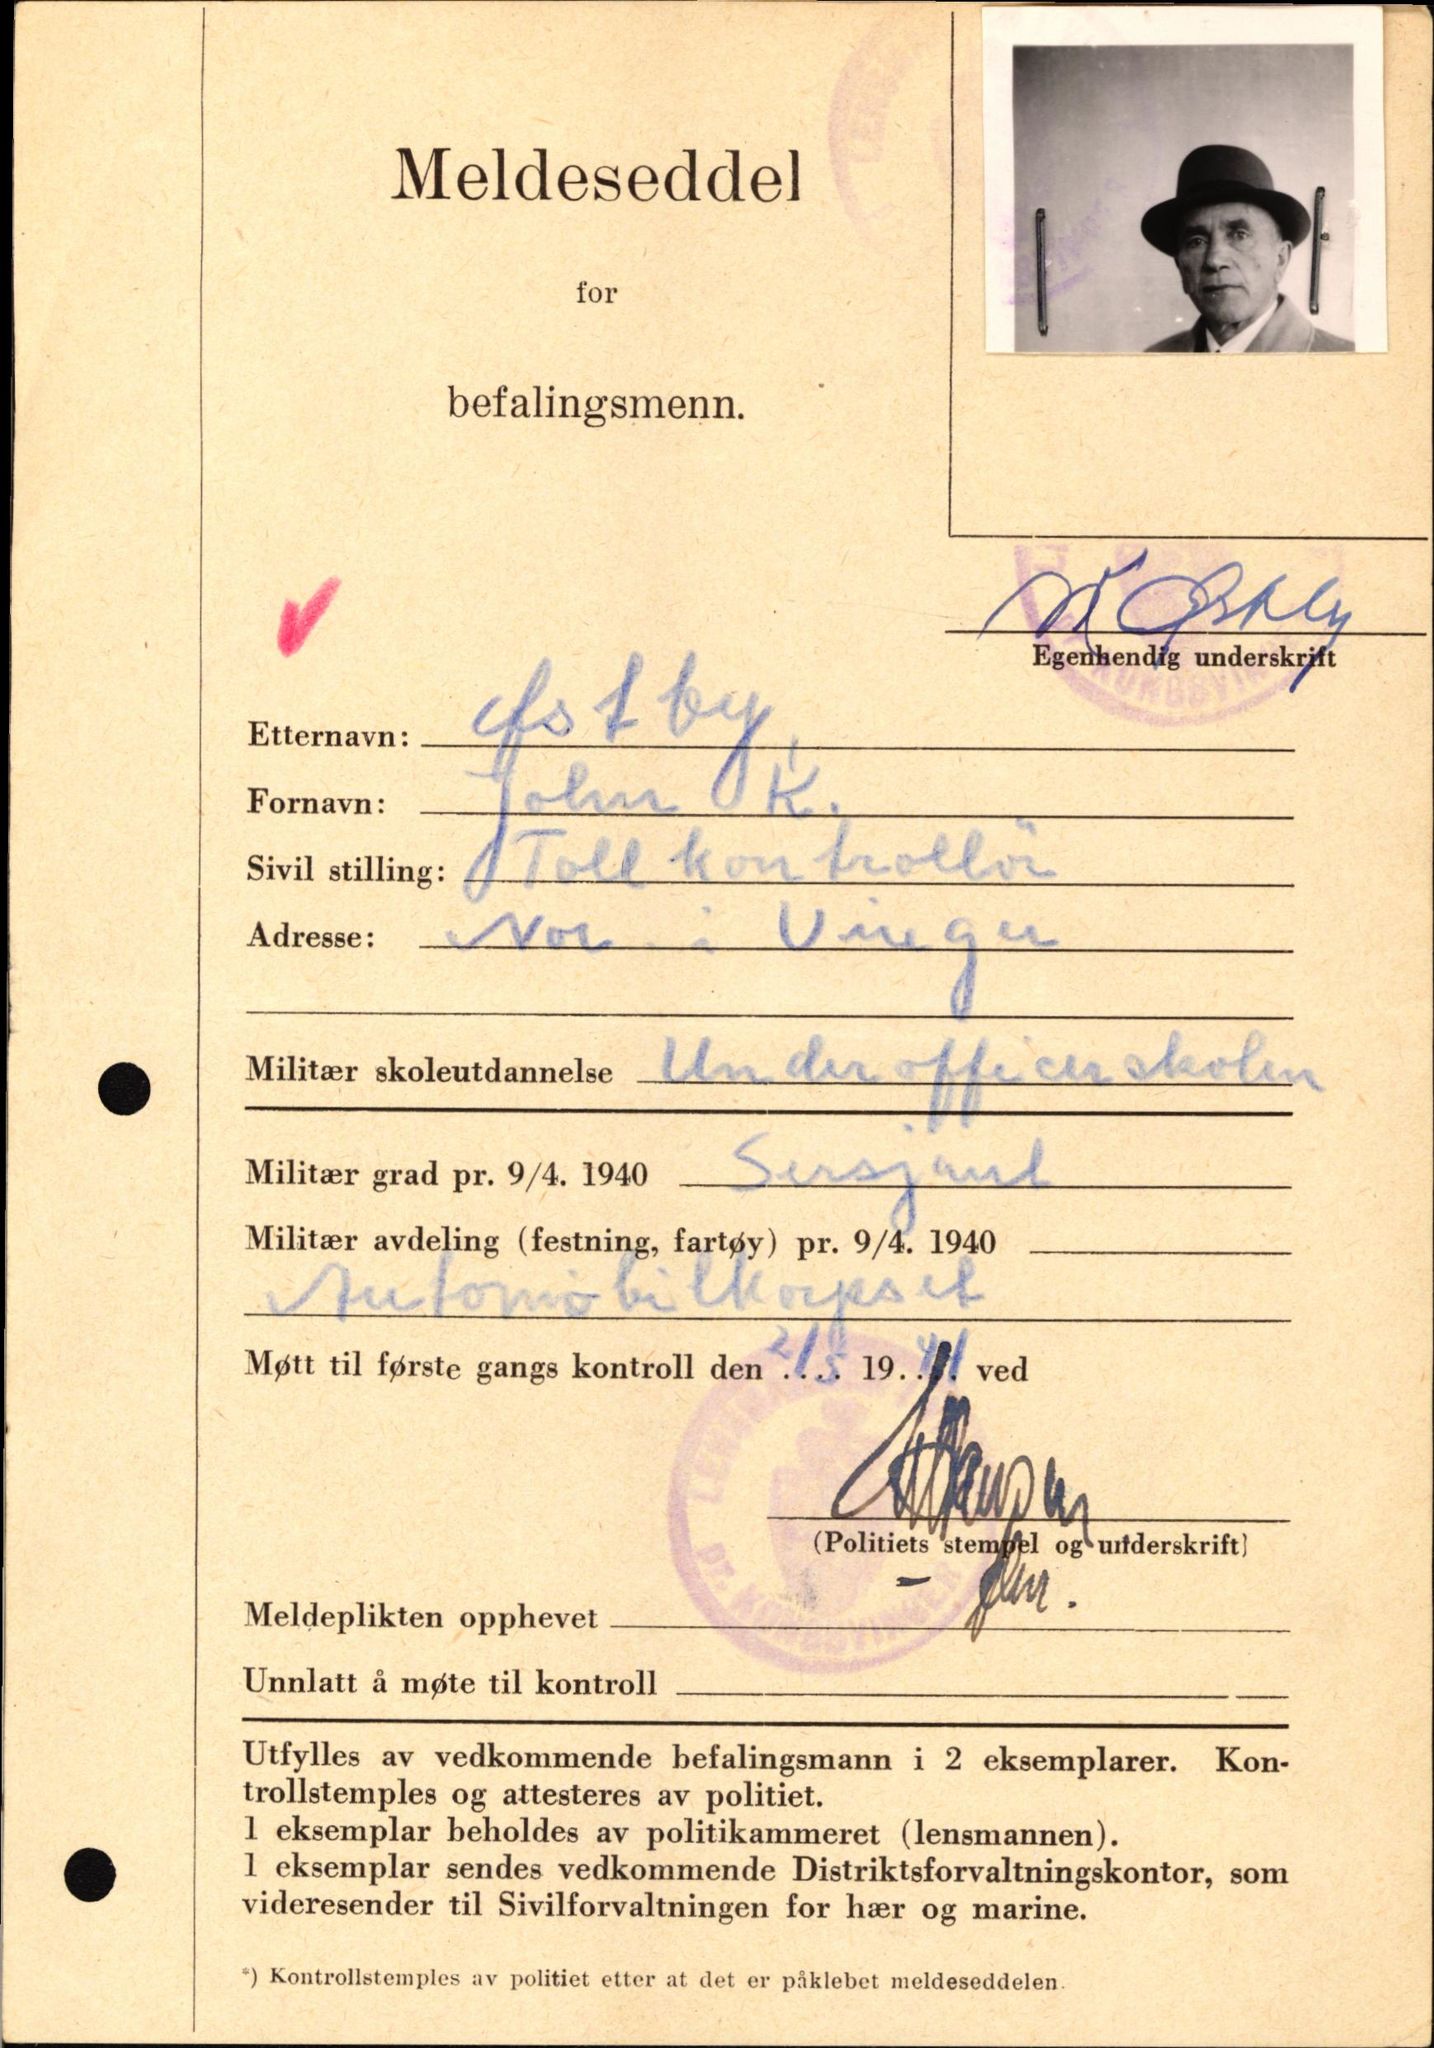 Meldeseddel
for
befalingsmenn.
Egenhendig underskrift
Etternavn: Østby,
Fornavn: John K.
Sivil stilling: Tollkontrollör
Adresse: Nor i Vinger
Militær skoleutdannelse Underofficerskolen
Militær grad pr. 9/4. 1940 Sersjant
Militær avdeling (festning, fartøy) pr. 9/4. 1940
Automobilkorpset
Møtt til første gangs kontroll den 2/5 1941 ved
(Politiets stempel og underskrift)
Meldeplikten opphevet
Unnlatt å møte til kontroll
Utfylles av vedkommende befalingsmann i 2 eksemplarer. Kon-
trollstemples og attesteres av politiet.
1 eksemplar beholdes av politikammeret (lensmannen).
1 eksemplar sendes vedkommende Distriktsforvaltningskontor, som
videresender til Sivilforvaltningen for hær og marine.
*) Kontrollstemples av politiet etter at det er påklebet meldeseddelen.